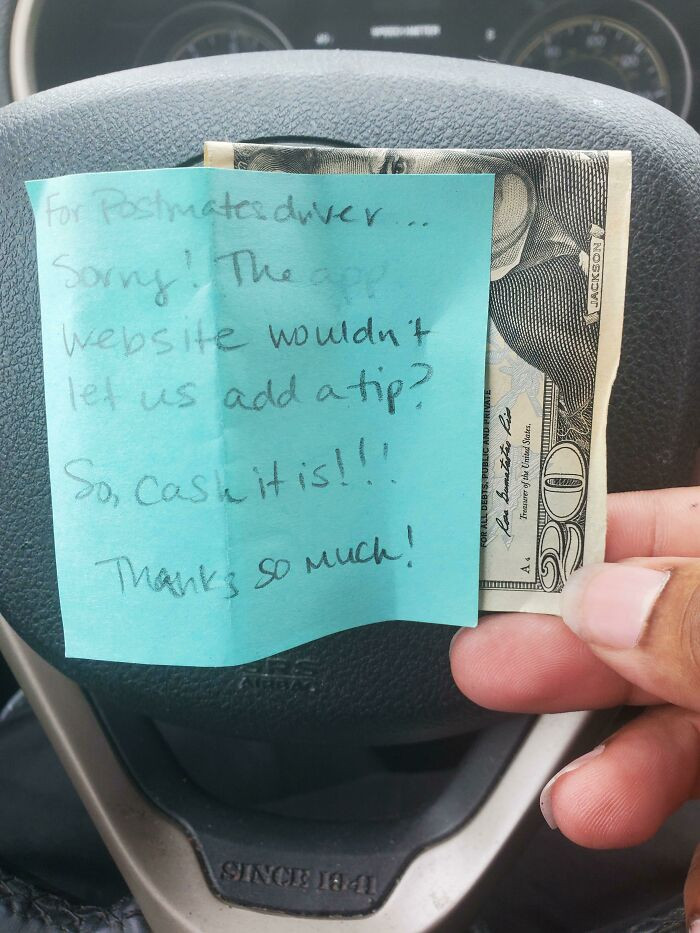 For Postmates driver...
Sorry! The app
website wouldn't
let us add a tip?
So, cash it is!!!
Thanks so much!
JACKSON
FOR ALL DEBTS, PUBLIC AND PRIVATE
Treasurer of the United States.
A 4
20
AIRBAG
SINCE 1941